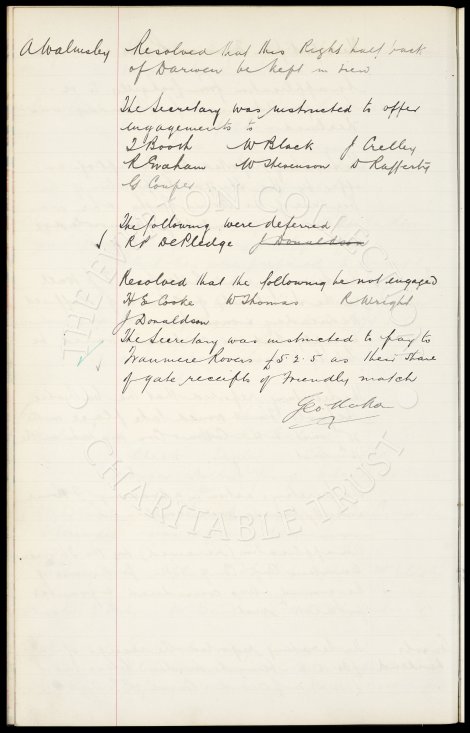 A Walmsley Resolved that this Right half back
of Darwen be kept in view
The Secretary was instructed to offer
engagements to
T Booth W Black J Crelley
R Graham W Stevenson D Rafferty
G Couper
The following were deferred
R P DePledge J Donaldson
Resolved that the following be not engaged
H E Cooke W Thomas R Wright
J Donaldson
The Secretary was instructed to pay to
Tranmere Rovers £5.2.5 as their share
of gate receipts of Friendly match
Geo Mahon
THE EVERTON COLLECTION
CHARITABLE TRUST